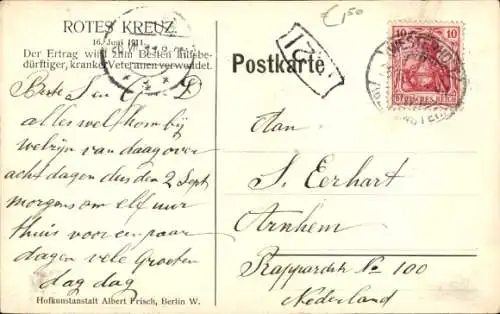 € 1,50
ROTES KREUZ.
16. Juni 1911.
Der Ertrag wird zum Besten hilfsbe-
dürftiger, kranker Veteranen verwendet.
Postkarte
10 10
DEUTSCHES REICH
Beste S en D
alles wel, kom bij
welzijn van daag over
acht dagen dus den 2 Sept
morgens om elf uur
thuis voor een paar
dagen vele Groeten
dag dag
Aan
S. Eerhart
Arnhem
Rappardstr. No 100
Nederland
Hofkunstanstalt Albert Frisch, Berlin W.